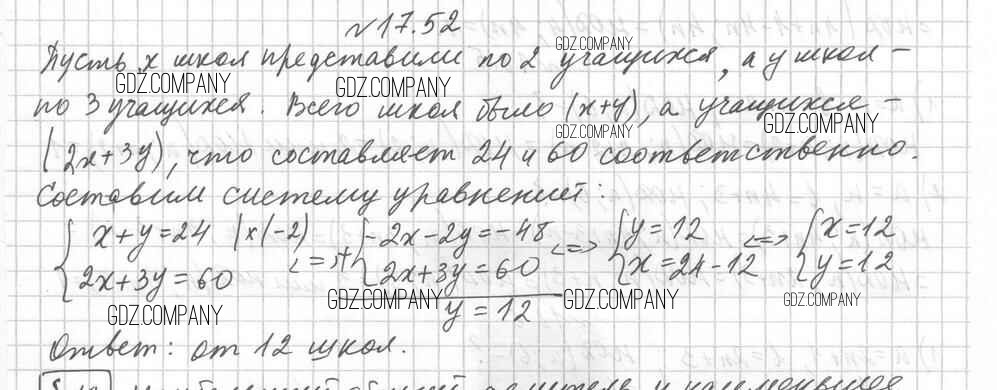 №17.52
Пусть x школ представили по 2 учащихся, а y школ –
по 3 учащихся. Всего школ было (x+y), а учащихся –
(2x+3y), что составляет 24 и 60 соответственно.
Составим систему уравнений:
{ x+y=24 |×(-2) <=> + { -2x-2y=-48 <=> { y=12 <=> { x=12
2x+3y=60 2x+3y=60 x=24-12 y=12
y=12
Ответ: от 12 школ.
GDZ.COMPANY
GDZ.COMPANY
GDZ.COMPANY
GDZ.COMPANY
GDZ.COMPANY
GDZ.COMPANY
GDZ.COMPANY
GDZ.COMPANY
GDZ.COMPANY